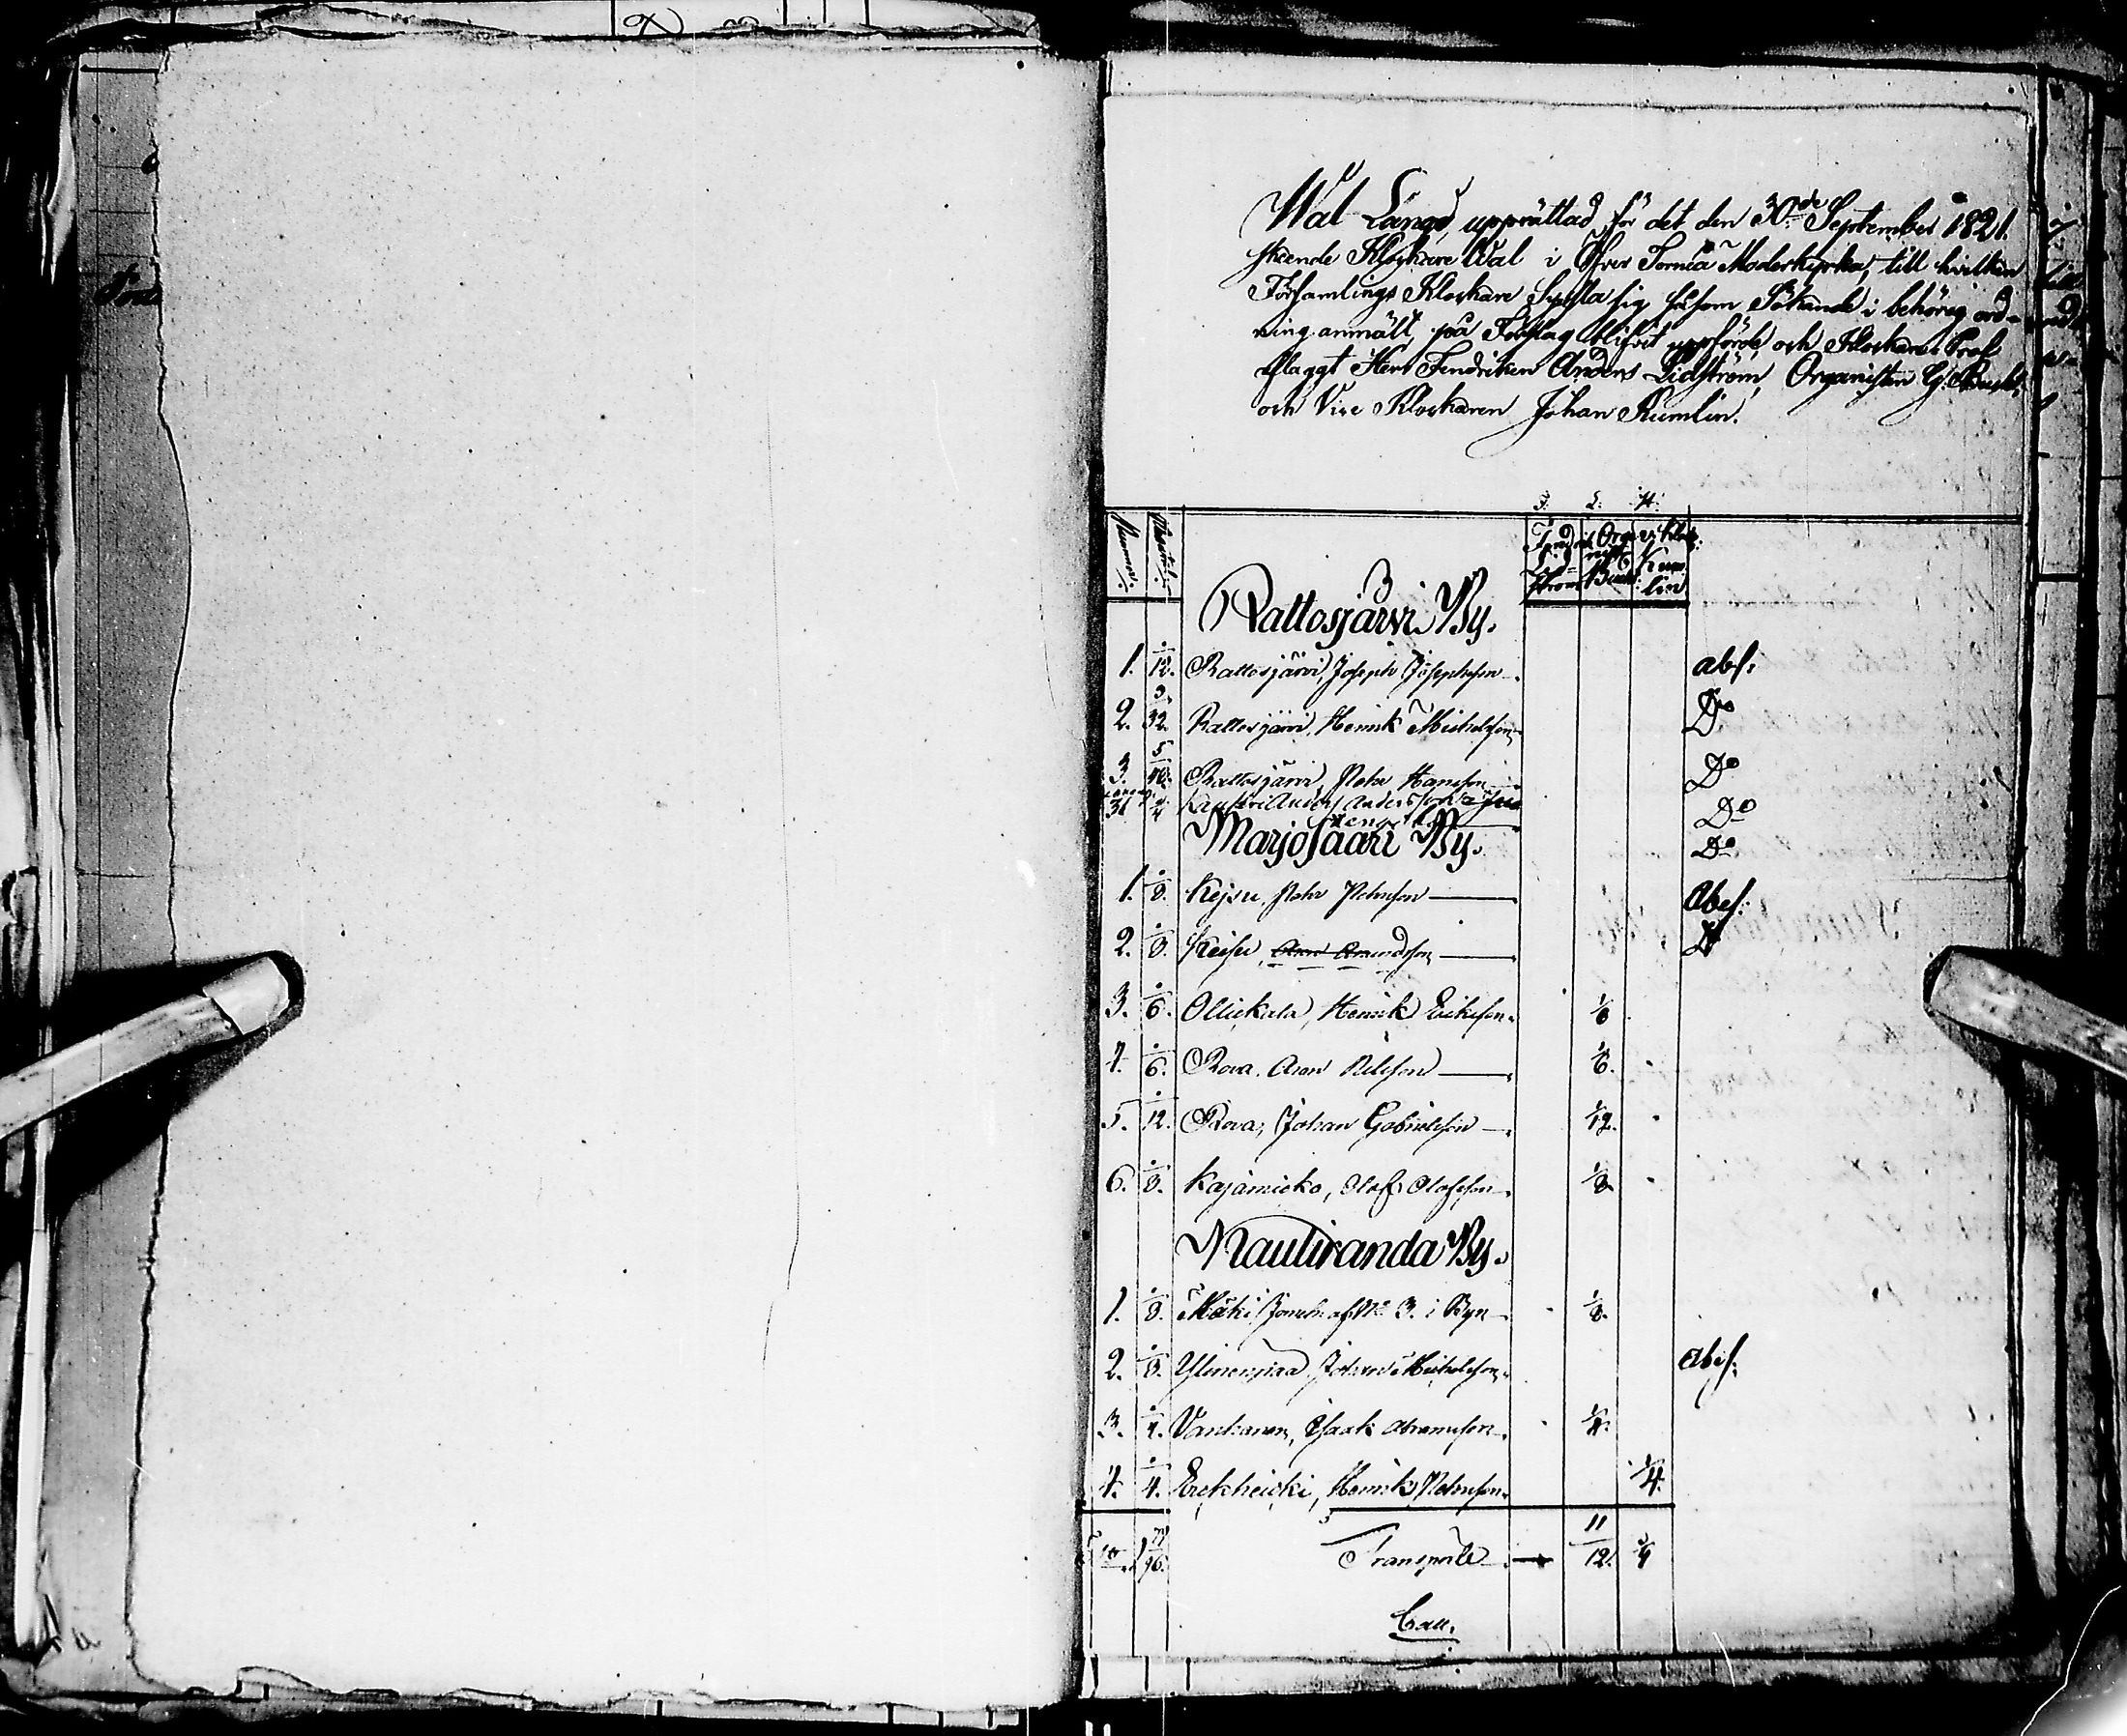 Wal Längd, upprättad för det den 30de September 1821.
skeende Klockare Wal i Öfver Torneå Moderkyrka, till hvilken
Församlings Klockare Syssla sig såsom Sökande i behörig ord-
ning anmält, på Förslag blifvit uppförde och Klockare Prof
aflaggt Herr Fendriken Anders Lidström, Organisten G.
och Vice Klockaren Johan Kumlin.
Nummer. Mantal.
Rattosjärvi By.
1. 1/12. Rattosjärvi, Joseph Josephsson abs.
2. 3/32. Rattosjärvi, Henrik Michelsson Do
3. 5/48. Rattosjärvi, Petter Hansson Do
31 1/4 Anders Andersson Do
Marjosaari By. Do
1. 1/8. Kejsu, Petter Petersson abs.
2. 1/8. Keisu, Do
3. 1/6. Ollickala, Henrik Ericksson. 1/6
4. 1/6. Rova, Aron Nilsson 1/6.
5. 1/12. Rova, Johan Gabrielsson 1/12.
6. 1/8. Kajamicko, Olof Olofsson 1/8
Nauliranda By.
1. 1/8. Mäki, af No 3. i Byn 1/8.
2. 1/8. Johan Michelsson abs.
3. 1/4. Vanhanen, Isaak Abramsson 1/4.
4. 1/4. Erckheicki, Henrik Petersson 1/4.
Transporte 11/12. 1/4